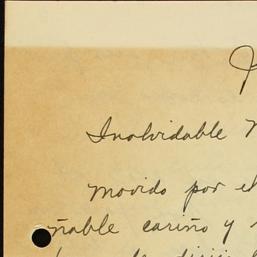 Inolvidable
Movido por el
ñable cariño y